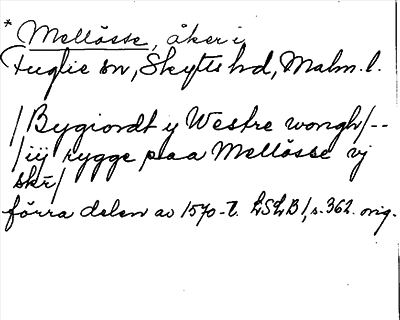 * Mellösse, åker i
Fuglie sn, Skytts hd, Malm. l.
/Bygiordt y Westre wongh/--
/iij rygge paa Mellösse vj
skr/
förra delen av 1570-t. LSLB 1, s. 362. orig.